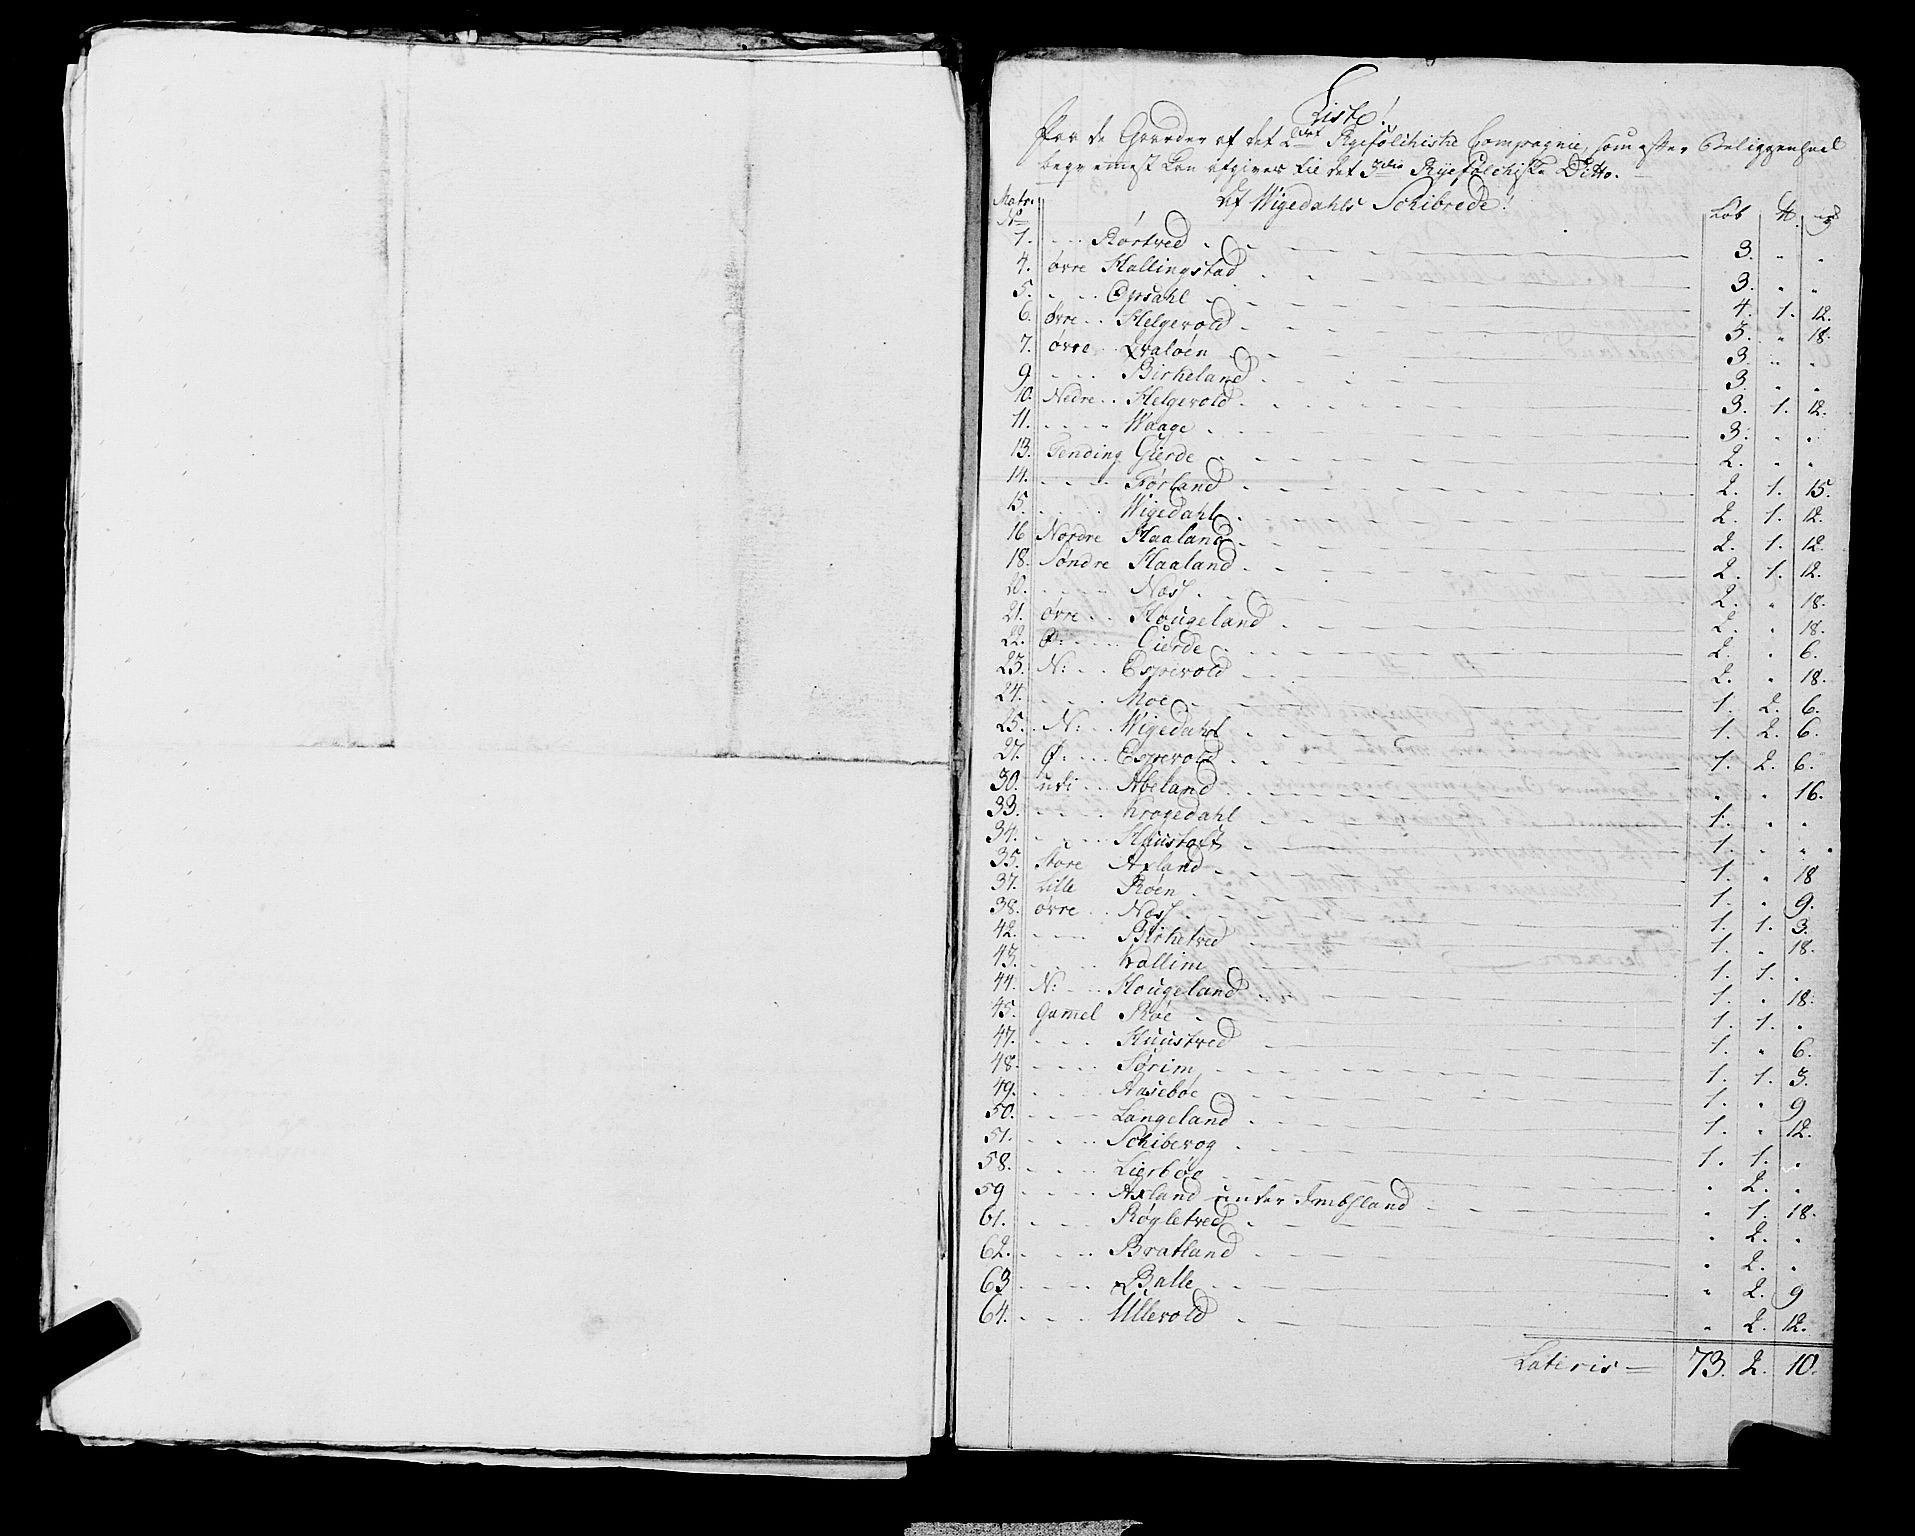 Liste!
for de Gaarder af det 2det Ryefølchiske Compagnie, som efter Beliggenhed
beqvemest kan afgives til det 3die Ryefølchiske Ditto.
Af Wigedahls Schibrede!
Matr: No Løb ℔ mk
1. Rørtved 3. " "
4. øvre Hallingstad 3. " "
5. Opsahl 4. 1. 12.
6. øvre Helgevold 3. " 18.
7. øvre Qvaløen 3. " "
9. Birkeland 3. " "
10. Nedre Helgevold 3. 1. 12.
11. Waage 3. " "
13. Tending Gierde 2. " "
14. Førland 2. 1. 15.
15. Wigedahl 2. 1. 12.
16 Nordre Haaland 2. 1. 12.
18. Søndre Haaland 2. 1. 12.
20. Næss 2. " 18.
21. øvre Hougeland 2. " 18.
22. Ø: Gierde 2. " 6.
23. N: Espevold 2. " 18.
24. Moe 1. 2. 6.
25. N: Wigedahl 1. 2. 6.
27. Ø: Espevold 1. 2. 6.
30. udi Abeland " " 16.
33. Krogedahl 1. " "
34. Huustoft 1. " "
35. Store Axland 1. " 18
37. Lille Røen 1. " 9.
38. øvre Næss 1. 1. 3.
42. Birketved 1. " 18.
43. Kallim 1. 1. "
44. N: Hougeland 1. " 18.
45. Gamel Røe 1. 1. "
47. Huustved 1. " 6.
48. Sørim 1. 1. 3.
49. Aasebøe 1. " 9
50. Langeland 1. " 12.
51. Schibevog 1. 1. "
58. Lierbøe " 2. "
59 Axland under Imbsland " 1. 18.
61. Røgletved " 2. "
62. Bratland " 2. "
63 Balle " 2. 9
64. Ullevold " 2. 12.
Lateris 73. 2. 10.